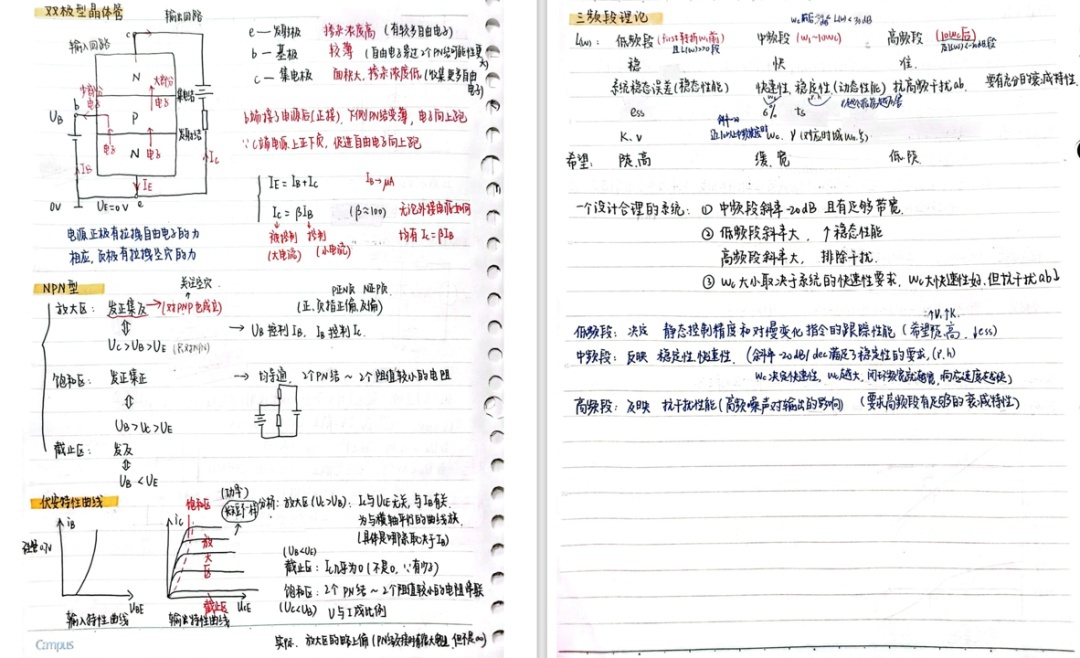 双极型晶体管
输出回路
输入回路
c
N
大部分
电子
少部分
电子
集电结
b
P
U_B
电子
电子
发射结
N
I_B
I_E
I_C
0V
U_E=0V
e
电源正极有拉拽自由电子的力
相应,负极有拉拽空穴的力
e—发射极 掺杂浓度高 (有较多自由电子)
b—基极 较薄 (自由电子穿过2个PN结可能性更大)
c—集电极 面积大,掺杂浓度低 (收集更多自由电子)
b端接了电源后(正接),下侧PN结变薄,电子向上跑
∵c端电源上正下负,促进自由电子向上跑
I_E=I_B+I_C I_B→μA
I_C=βI_B (β≈100)
均有I_C=βI_B
被控制 控制
(大电流) (小电流)
NPN型
P正N负 N正P负
放大区: 发正集反→(对PNP也成立) (正,负指正偏,反偏)
⇕ → U_B控制I_B, I_B控制I_C.
U_C>U_B>U_E (只对NPN)
饱和区: 发正集正 → 均导通, 2个PN结~2个阻值较小的电阻
⇕
U_B>U_C>U_E
截止区: 发反
⇕
U_B<U_E
伏安特性曲线
i_B
0.7V
U_BE
输入特性曲线
(功率)
饱和区
i_C
放
大
区
截止区
U_CE
输出特性曲线
分析: 放大区(U_C>U_B): I_C与U_CE无关,与I_B有关.
为与横轴平行的曲线族.
(具体是哪条取决于I_B)
(U_B<U_E)
截止区: I_C几乎为0 (不是0, ∵有少子)
饱和区: 2个PN结~2个阻值较小的电阻串联
(U_C<U_B) U与I成比例
Campus
三频段理论
L(ω): 低频段 中频段 (ω₁~10ω_c) 高频段 (10ω_c后)
稳 快 准.
系统稳态误差(稳态性能) 快速性,稳定性(动态性能) 抗高频干扰ab. 要有充分的衰减特性
ess σ% ts
K. v ω_c. γ (对应时域ω_n.ξ)
希望: 陡.高 缓.宽 低.陡
一个设计合理的系统: ① 中频段斜率-20dB 且有足够带宽.
② 低频段斜率大, ↑稳态性能
高频段斜率大, 排除干扰.
③ ω_c大小取决于系统的快速性要求. ω_c大快速性好,但抗干扰ab↓
↑v.↑K.
低频段: 决定 静态控制精度和对慢变化指令的跟踪性能 (希望陡.高. ↓ess)
中频段: 反映 稳定性,快速性. (斜率-20dB/dec满足了稳定性的要求,(γ.h)
ω_c决定快速性, ω_c越大, 闭环频宽就越宽, 响应速度越快)
高频段: 反映 抗干扰性能 (高频噪声对输出的影响) (要求高频段有足够的衰减特性)